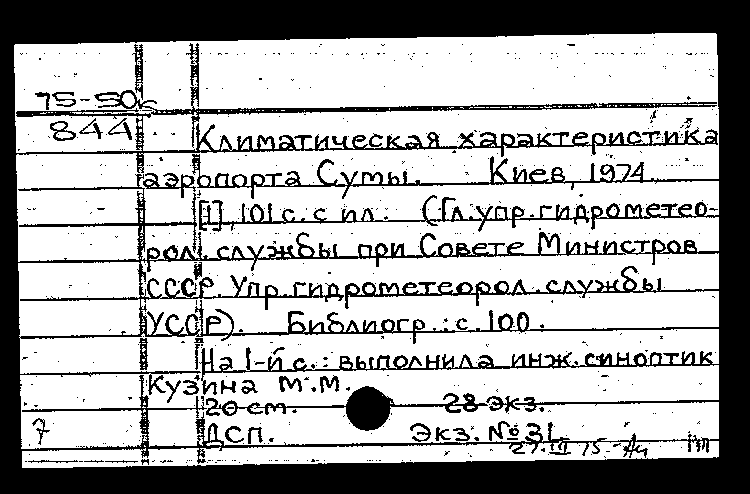 75-50к
844
Климатическая характеристика
аэропорта Сумы. Киев, 1974.
[1], 101 с. с ил. (Гл. упр. гидрометео-
рол. службы при Совете Министров
СССР. Упр. гидрометеорол. службы
УССР). Библиогр.: с. 100.
На 1-й с.: выполнила инж. синоптик
Кузина М.М.
20 см. 28 экз.
7 ДСП. Экз. № 31
27.III 75